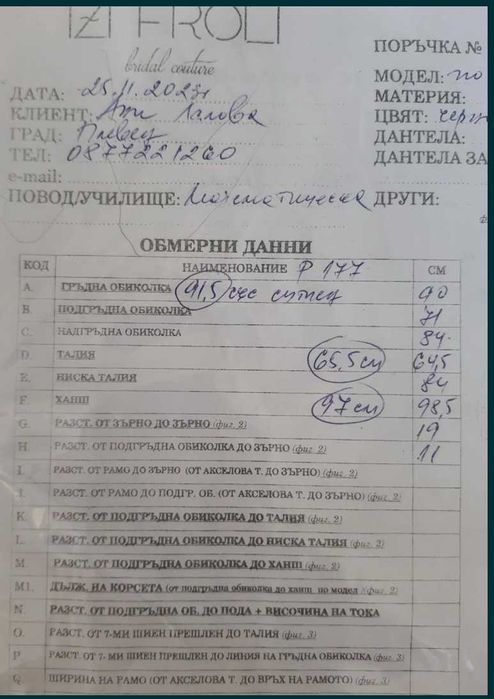 bridal couture
ПОРЪЧКА №
ДАТА: 25.11.2023г
МОДЕЛ: по
КЛИЕНТ: Ани
МАТЕРИЯ:
ГРАД: Плевен
ЦВЯТ: черн
ТЕЛ: 0877221260
ДАНТЕЛА:
e-mail:
ДАНТЕЛА ЗА
ПОВОД/УЧИЛИЩЕ: Математическа ДРУГИ:
ОБМЕРНИ ДАННИ
КОД НАИМЕНОВАНИЕ Р 177 СМ
A. ГРЪДНА ОБИКОЛКА 91,5 със сутиен 90
B. ПОДГРЪДНА ОБИКОЛКА 71
C. НАДГРЪДНА ОБИКОЛКА 84
D. ТАЛИЯ 65,5 см 64,5
E. НИСКА ТАЛИЯ 84
F. ХАНШ 97 см 98,5
G. РАЗСТ. ОТ ЗЪРНО ДО ЗЪРНО (фиг. 2) 19
H. РАЗСТ. ОТ ПОДГРЪДНА ОБИКОЛКА ДО ЗЪРНО (фиг. 2) 11
I. РАЗСТ. ОТ РАМО ДО ЗЪРНО (ОТ АКСЕЛОВА Т. ДО ЗЪРНО) (фиг. 2)
J. РАЗСТ. ОТ РАМО ДО ПОДГР. ОБ. (ОТ АКСЕЛОВА Т. ДО ЗЪРНО) (фиг. 2)
K. РАЗСТ. ОТ ПОДГРЪДНА ОБИКОЛКА ДО ТАЛИЯ (фиг. 2)
L. РАЗСТ. ОТ ПОДГРЪДНА ОБИКОЛКА ДО НИСКА ТАЛИЯ (фиг. 2)
M. РАЗСТ. ОТ ПОДГРЪДНА ОБИКОЛКА ДО ХАНШ (фиг. 2)
M1. ДЪЛЖ. НА КОРСЕТА (от подгръдна обиколка до ханш по модел) (фиг. 2)
N. РАЗСТ. ОТ ПОДГРЪДНА ОБ. ДО ПОДА + ВИСОЧИНА НА ТОКА
O. РАЗСТ. ОТ 7-МИ ШИЕН ПРЕШЛЕН ДО ТАЛИЯ (фиг. 3)
P РАЗСТ. ОТ 7- МИ ШИЕН ПРЕШЛЕН ДО ЛИНИЯ НА ГРЪДНА ОБИКОЛКА (фиг. 3)
Q. ШИРИНА НА РАМО (ОТ АКСЕЛОВА Т. ДО ВРЪХ НА РАМОТО) (фиг. 3)